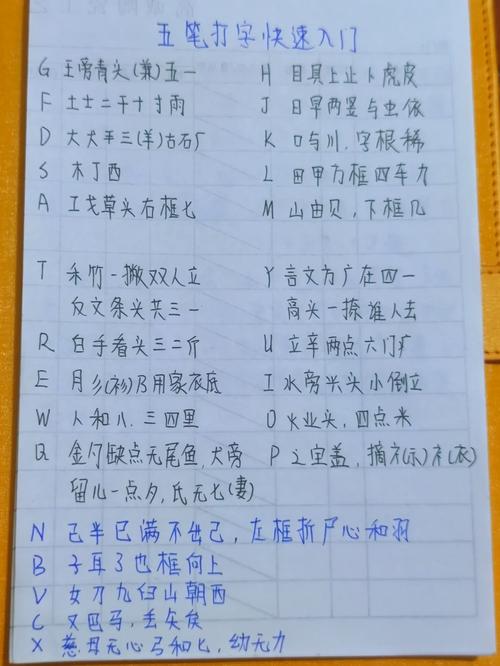 五笔打字快速入门
G 王旁青头(兼)五一 H 目具上止卜虎皮
F 土士二干十寸雨 J 日早两竖与虫依
D 大犬平三(羊)古石厂 K 口与川,字根稀
S 木丁西 L 田甲方框四车力
A 工戈草头右框七 M 山由贝,下框几
T 禾竹一撇双人立 Y 言文方广在四一
反文条头共三一 高头一捺谁人去
R 白手看头三二斤 U 立辛两点六门疒
E 月彡(衫)乃用家衣底 I 水旁兴头小倒立
W 人和八.三四里 O 火业头,四点米
Q 金勺缺点无尾鱼,犬旁 P 之宝盖,摘礻(示)衤(衣)
留儿一点夕,氏无七(妻)
N 己半巳满不出己,左框折尸心和羽
B 子耳了也框向上
V 女刀九臼山朝西
C 又巴马,丢矢矣
X 慈母无心弓和匕,幼无力